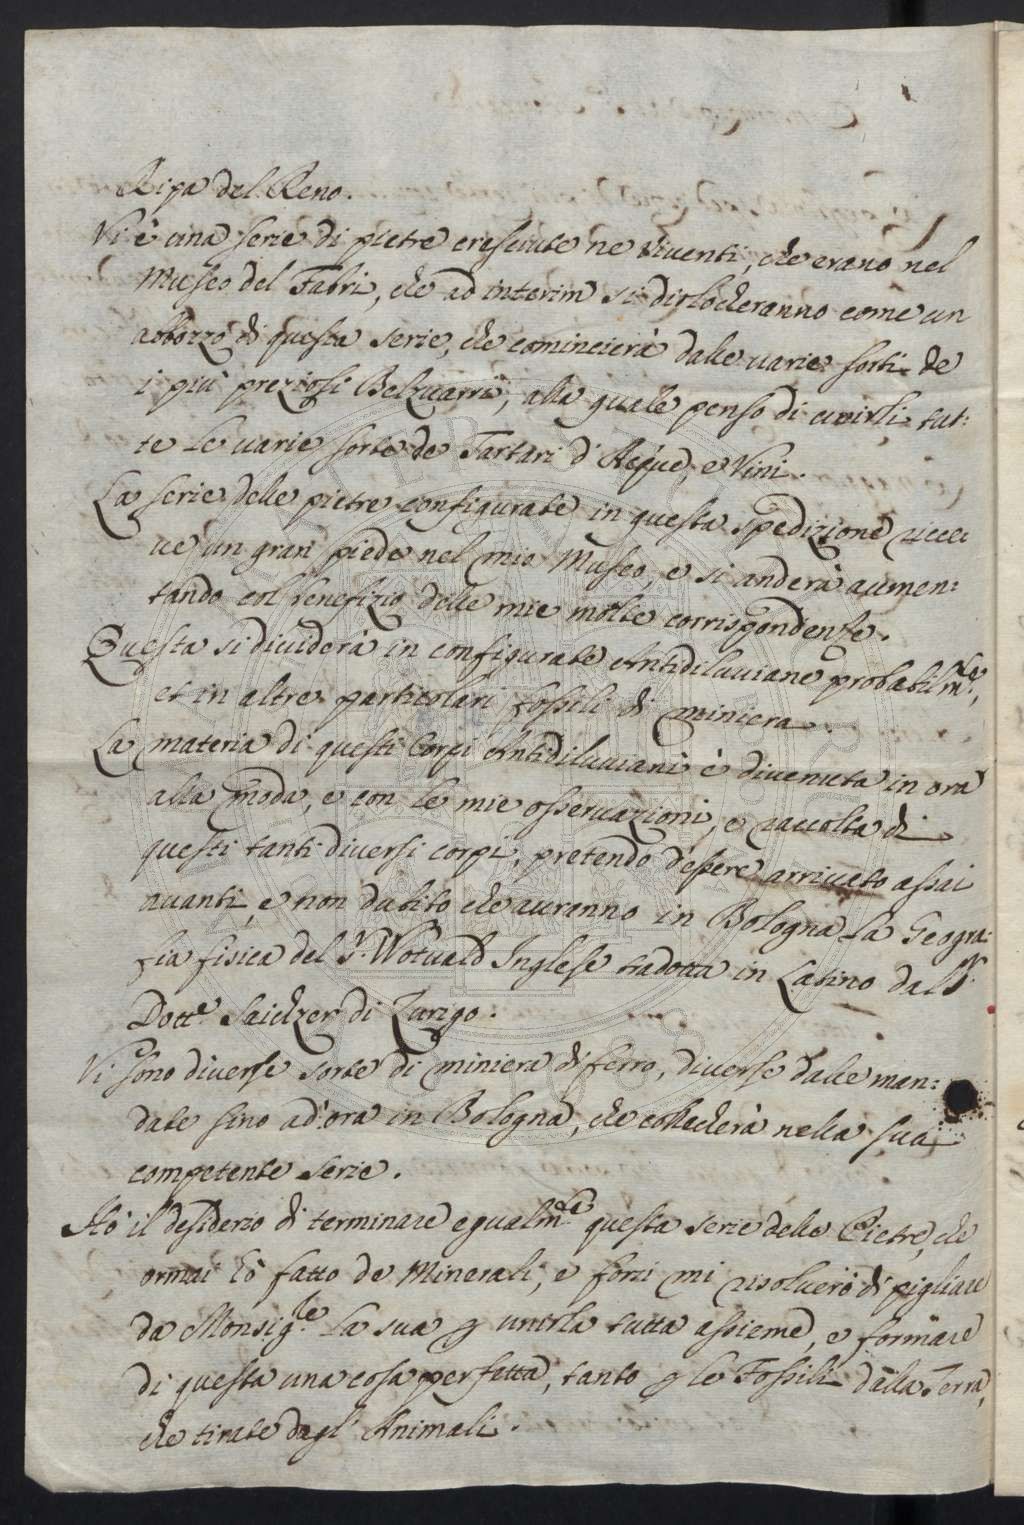 Ripa del Reno.
Vi è una serie di pietre cresciute ne viventi, che erano nel
Museo del Fabri, che ad interim si disloclheranno come un
abbozzo di questa serie, che comincierà dalle varie sorti de
i più preziosi Belzuarri, alla quale penso di unirli tut:
te le varie sorte de Tartari d'Acque, e Vini.
La serie delle pietre configurate in questa spedizione ricce
ue un gran piede nel mio Museo, e si anderà aumen:
tando col benefizio delle mie molte corrispondenze.
Questa si diuiderà in configurate Antidiluuiane probabilmte,
et in altre particolari fossili di miniera.
La materia di questi Corpi Antidiluuiani è divenuta in ora
alla moda, e con le mie osseruazioni, e raccolta di
questi tanti diuersi corpi, pretendo d'essere arriuato assai
auanti, e non dubito che auranno in Bologna la Geogra:
fia fisica del Sr. Wotuald Inglese tradotta in Latino dal Sr.
Dotte. Saichzer di Zurigo.
Vi sono diuerse sorte di miniera di ferro, diuerse dalle man:
date sino ad'ora in Bologna, che collocherà nella sua
competente serie.
Hò il desiderio di terminare egualmte. questa serie delle Pietre, che
ormai hò fatto de Minerali, e forsi mi risoluerò di pigliare
da Monsigre. la sua p unirla tutta assieme, e formare
di questa una cosa perfetta, tanto p le Fossili dalla Terra,
che tirate dagl' Animali.